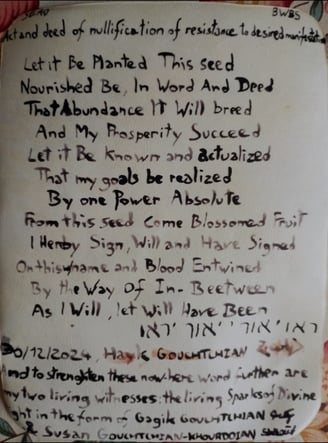 3WBS
and deed of nullification of resistance to desired manifestation
Let it Be Planted This seed
Nourished Be, In Word And Deed
That Abundance It Will breed
And My Prosperity Succeed
Let it Be Known and actualized
That my goals be realized
By one Power Absolute
From this seed Come Blossomed Fruit
I Herby Sign, Will and Have Signed
On this name and Blood Entwined
By the Way Of In-Beetween
As I Will, let Will Have Been
30/12/2024, Hayk GOUCHTCHIAN
and to strenghten these now here word further are
my two living witnesses: the living Sparks of Divine
in the form of Gagik GOUCHTCHIAN
& Susan GOUCHTCHIAN-KHOURDOIAN